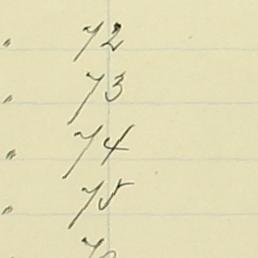 " 72
" 73
" 74
" 75